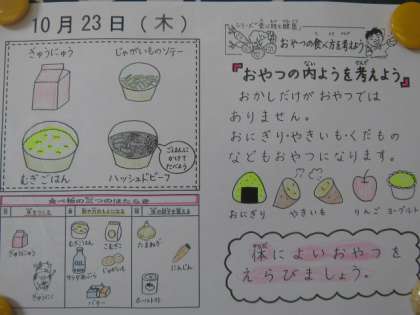 10月23日(木)
ぎゅうにゅう
じゃがいものソテー
むぎごはん
ハッシュドビーフ
ごはんに
かけて
たべよう
食べ物の三つのはたらき
ぎゅうにゅう
ぎゅうにく
むぎごはん
こむぎこ
じゃがいも
バター
たまねぎ
にんじん
おやつの食べ方を考えよう
『おやつの内ようを考えよう』
おかしだけが おやつでは
ありません。
おにぎり・やきいも・くだもの
などもおやつになります。
おにぎり
やきいも
りんご
ヨーグルト
体によいおやつを
えらびましょう。